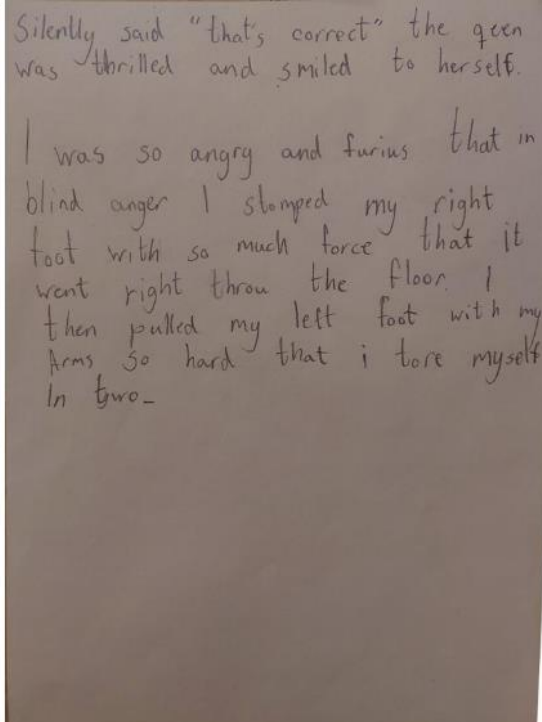 Silently said "that's correct" the qeen
was thrilled and smiled to herself.
I was so angry and furius that in
blind anger I stomped my right
foot with so much force that it
went right throu the floor. I
then pulled my left foot with my
Arms so hard that i tore myself
In two_